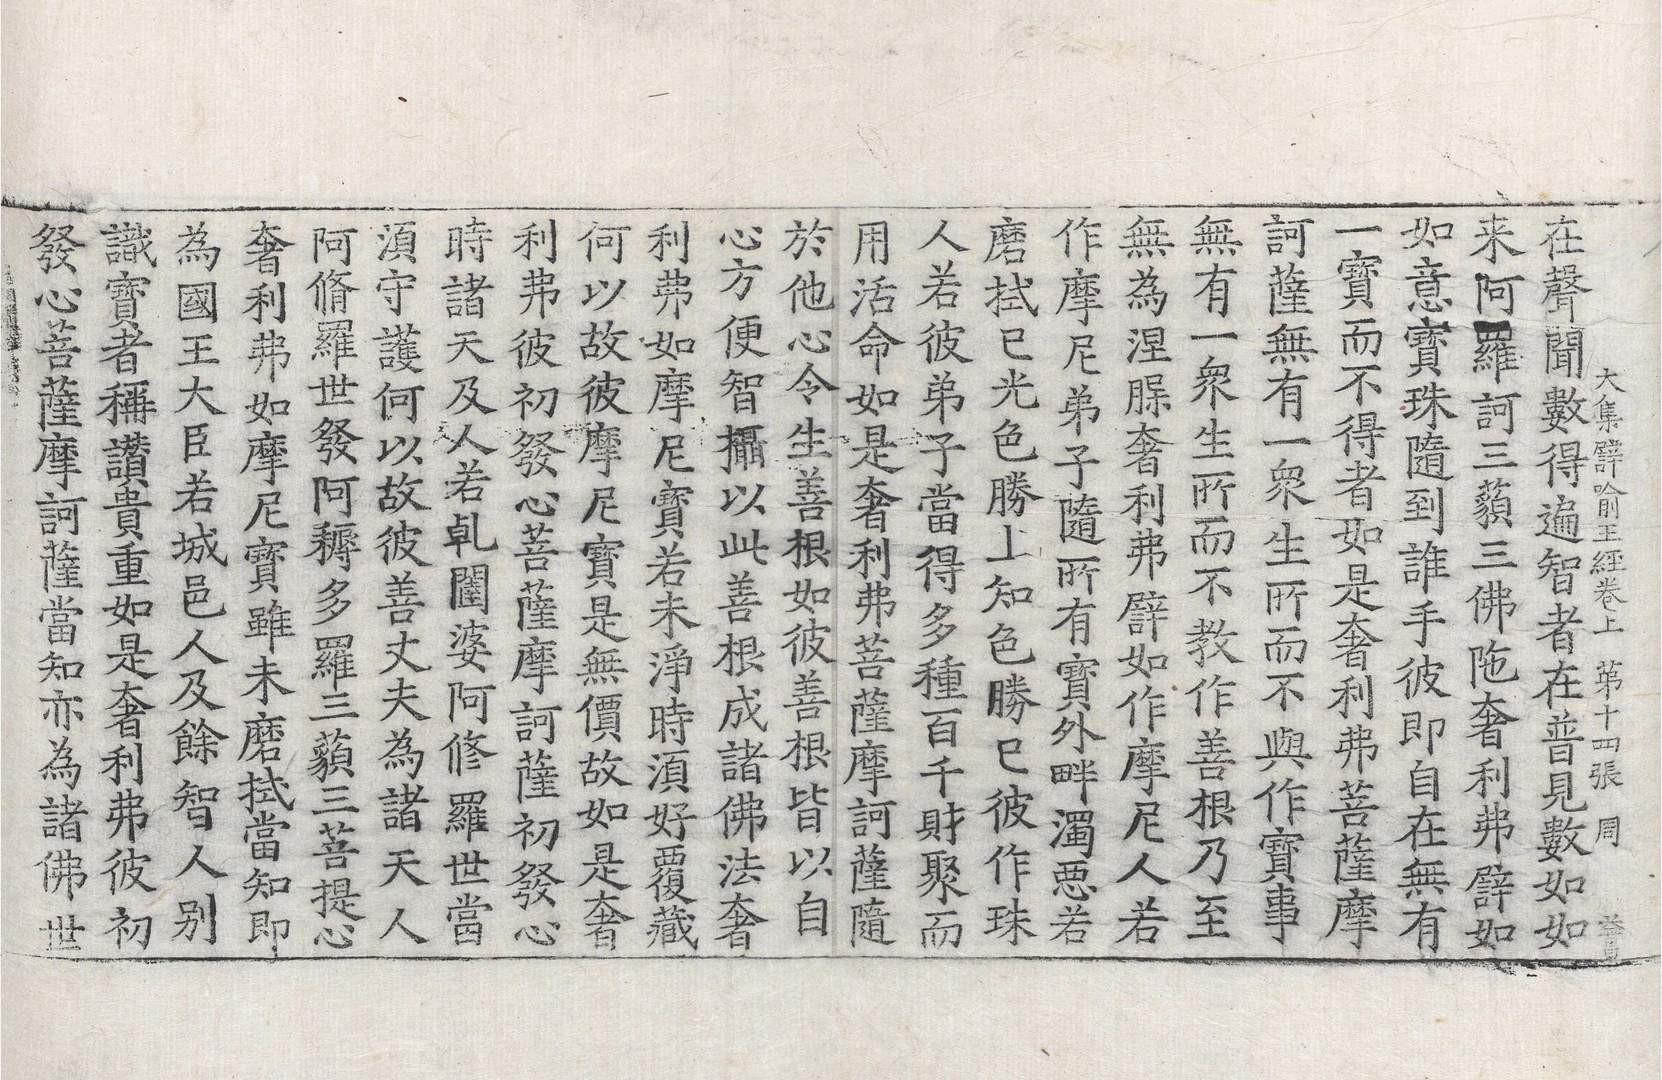 大集譬喻王經卷上 第十四張 周
在聲聞數得遍智者在普見數如如
来阿羅訶三藐三佛陁奢利弗譬如
如意寶珠隨到誰手彼即自在無有
一寶而不得者如是奢利弗菩薩摩
訶薩無有一衆生所而不與作寶事
無有一衆生所而不教作善根乃至
無為涅腂奢利弗譬如作摩尼人若
作摩尼弟子隨所有寶外畔濁惡若
磨拭已光色勝上知色勝已彼作珠
人若彼弟子當得多種百千財聚而
用活命如是奢利弗菩薩摩訶薩隨
於他心令生善根如彼善根皆以自
心方便智攝以此善根成諸佛法奢
利弗如摩尼寶若未淨時須好覆藏
何以故彼摩尼寶是無價故如是奢
利弗彼初發心菩薩摩訶薩初發心
時諸天及人若乹闥婆阿修羅世當
須守護何以故彼善丈夫為諸天人
阿脩羅世發阿耨多羅三藐三菩提心
奢利弗如摩尼寶雖未磨拭當知即
為國王大臣若城邑人及餘智人別
識寶者稱讃貴重如是奢利弗彼初
發心菩薩摩訶薩當知亦為諸佛世